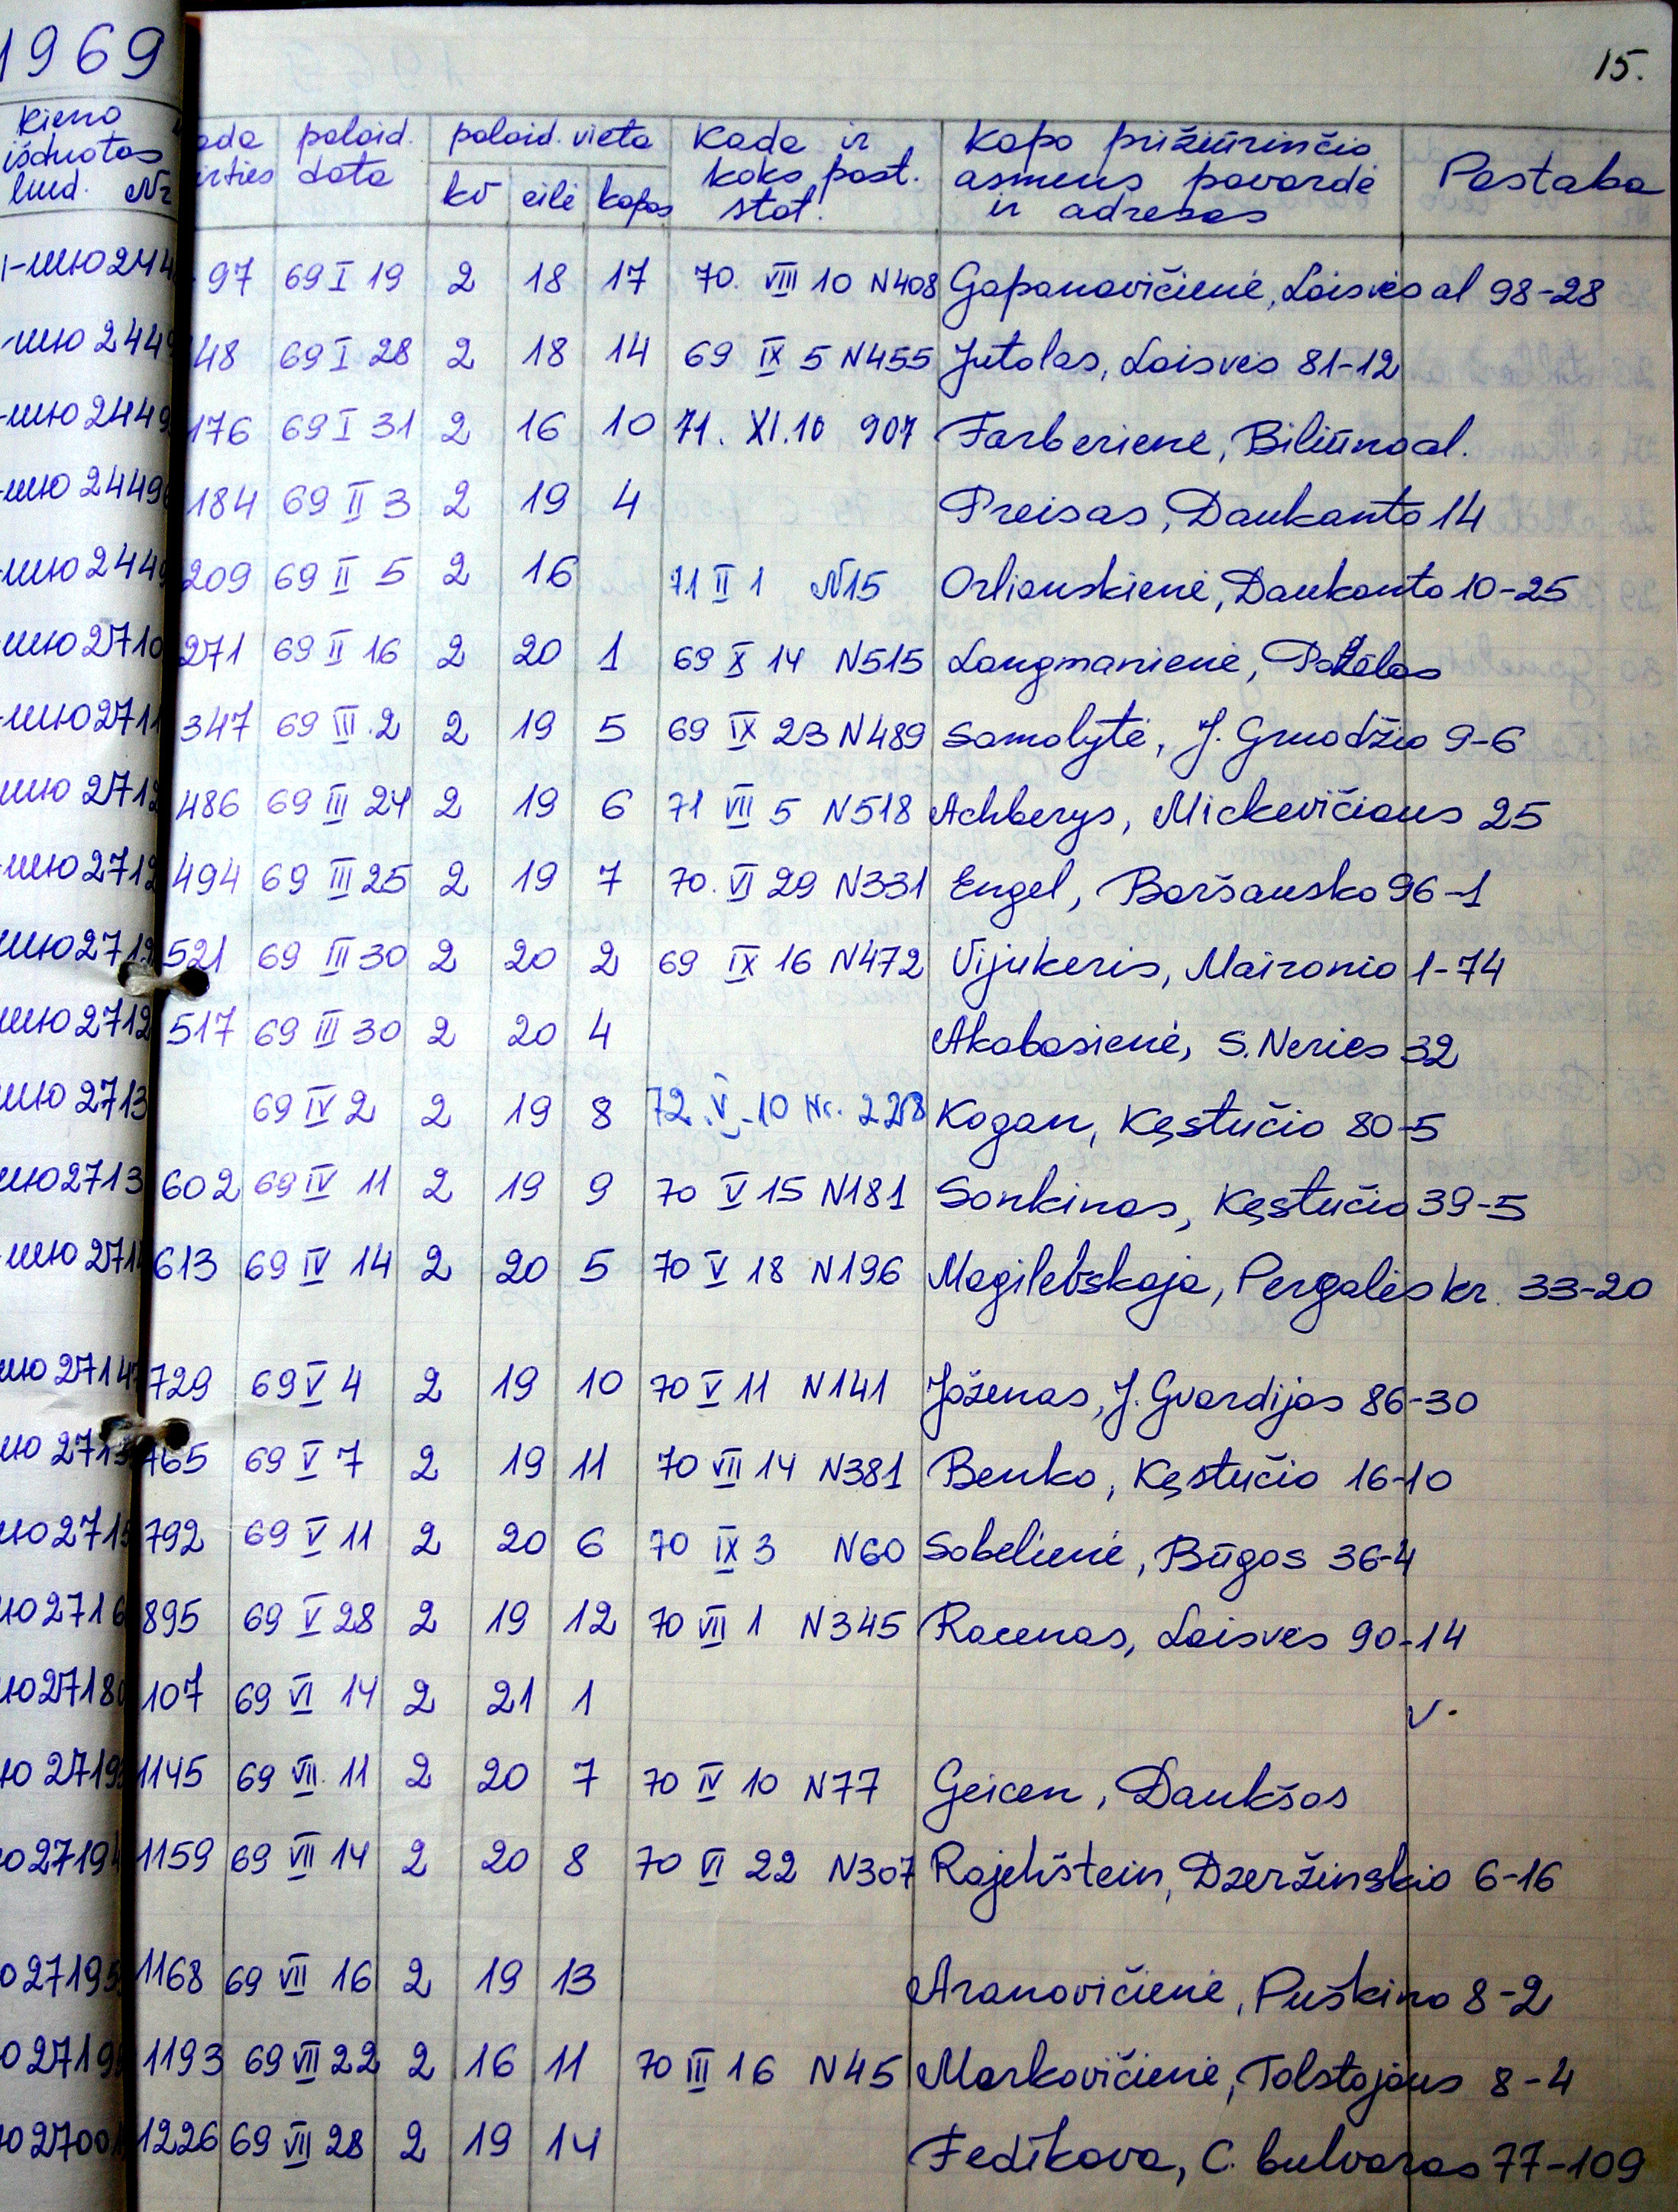 1969
15.
kieno išduotas liud. Nr
palaid. data
palaid. vieta
kv eilė kapas
Kada ir koks past. stat.
kapo prižiūrinčio asmens pavardė ir adresas
Pastaba
97 69 I 19 2 18 17 70. VIII 10 N408 Gapanovičienė, Laisvės al 98-28
48 69 I 28 2 18 14 69 IX 5 N455 Jutolas, Laisvės 81-12
176 69 I 31 2 16 10 71. XI.10 907 Farberienė, Biliūno al.
184 69 II 3 2 19 4 Preisas, Daukanto 14
209 69 II 5 2 16 71 II 1 N15 Orlianskienė, Daukanto 10-25
271 69 II 16 2 20 1 69 X 14 N515 Langmanienė,
347 69 III.2 2 19 5 69 IX 23 N489 Samolytė, J. Gruodžio 9-6
486 69 III 24 2 19 6 71 VII 5 N518 Achberys, Mickevičiaus 25
494 69 III 25 2 19 7 70. VI 29 N331 Engel, Boršausko 96-1
521 69 III 30 2 20 2 69 IX 16 N472 Vijukeris, Maironio 1-74
517 69 III 30 2 20 4 Akabasienė, S. Neries 32
69 IV 2 2 19 8 72. V-10 Nr. Kogan, Kęstučio 80-5
602 69 IV 11 2 19 9 70 V 15 N181 Sonkinas, Kęstučio 39-5
613 69 IV 14 2 20 5 70 V 18 N196 Magilevskaja, Pergalės kr. 33-20
729 69 V 4 2 19 10 70 V 11 N141 Joženas, J. Gvardijos 86-30
765 69 V 7 2 19 11 70 VII 14 N381 Benko, Kęstučio 16-10
792 69 V 11 2 20 6 70 IX 3 N60 Sobelienė, Būgos 36-4
895 69 V 28 2 19 12 70 VII 1 N345 Racenas, Laisvės 90-14
107 69 VI 14 2 21 1 V.
1145 69 VII. 11 2 20 7 70 IV 10 N77 Geicen, Daukšos
1159 69 VII 14 2 20 8 70 VI 22 N307 Rajchštein, Dzeržinskio 6-16
1168 69 VII 16 2 19 13 Aranovičienė, Puškino 8-2
1193 69 VII 22 2 16 11 70 III 16 N45 Markovičienė, Tolstojaus 8-4
1226 69 VII 28 2 19 14 Fedikova, C. bulvaras 77-109